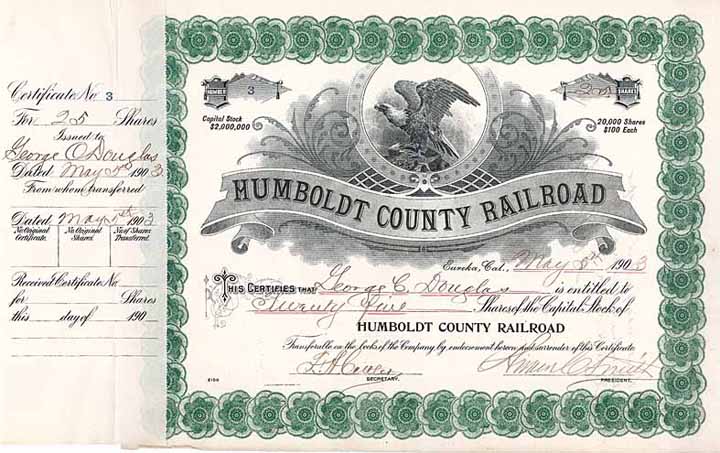 Certificate No. 3
For 25 Shares
Issued to
George C Douglas
Dated May 5th 1903
From whom transferred
Dated May 5th 1903
No. Original Certificate. No. Original Shares. No. of Shares Transferred.
Received Certificate No.
for Shares
this day of 190
NUMBER 3
SHARES 25
Capital Stock
$2,000,000
20,000 Shares
$100 Each
HUMBOLDT COUNTY RAILROAD
Eureka, Cal., May 5th 1903
THIS CERTIFIES THAT George C. Douglas is entitled to
Twenty Five Shares of the Capital Stock of
HUMBOLDT COUNTY RAILROAD
Transferable on the books of the Company by endorsement hereon and surrender of this Certificate
SECRETARY.
PRESIDENT.